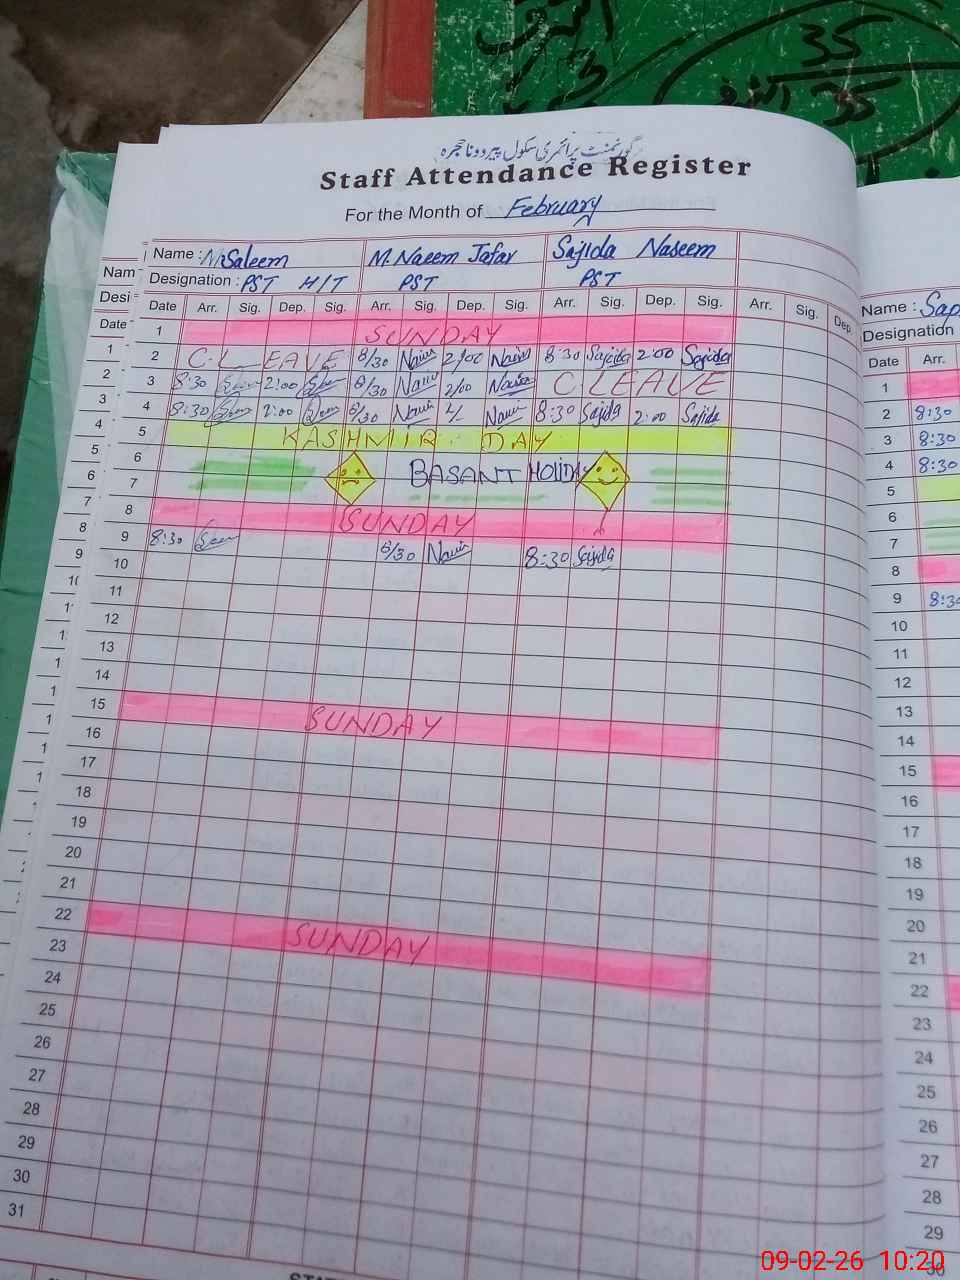 35
35
گورنمنٹ پرائمری سکول پیرووناحجرہ
Staff Attendance Register
For the Month of February
Name : M. Saleem M. Naeem Jafar Sajida Naseem
Designation : PST H/T PST PST
Date Arr. Sig. Dep. Sig. Arr. Sig. Dep. Sig. Arr. Sig. Dep. Sig. Arr. Sig. Dep
1 SUNDAY
2 C LEAVE 8/30 2/00 8:30 Sajida 2:00 Sajida
3 8:30 2:00 8/30 2/00 C LEAVE
4 8:30 2:00 8/30 8:30 Sajida 2:00 Sajida
5 KASHMIR DAY
6
7 BASANT HOLIDAY
8 SUNDAY
9 8:30 8/30 8:30 Sajida
10
11
12
13
14
15 SUNDAY
16
17
18
19
20
21
22 SUNDAY
23
24
25
26
27
28
29
30
31
Nam
Desi
Date
1
2
3
4
5
6
7
8
9
Name : Saj
Designation
Date Arr.
1
2 8:30
3 8:30
4 8:30
5
6
7
8
9 8:30
10
11
12
13
14
15
16
17
18
19
20
21
22
23
24
25
26
27
28
29
30
09-02-26 10:20